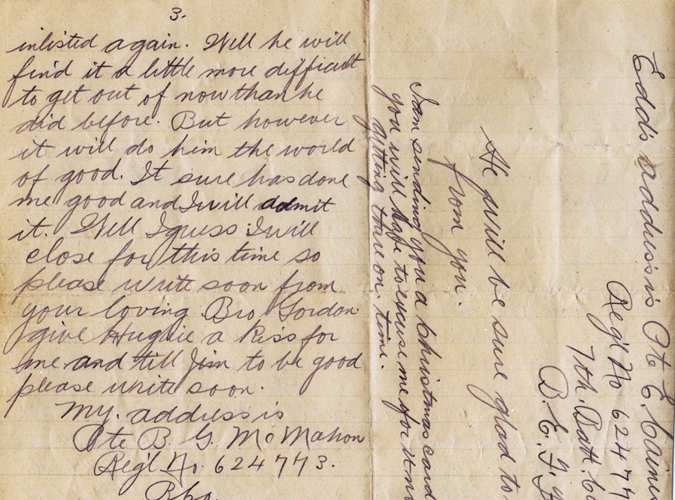 3.
inlisted again. Well he will
find it a little more difficult
to get out of now than he
did before. But however
it will do him the world
of good. It sure has done
me good and I will admit
it. Well I guess I will
close for this time so
please write soon from
your loving Bro Gordon
give Hughie a Kiss for
me and tell Jim to be good
please write soon.
My. address is
Pte B. G. McMahon
Reg'l No. 624773.
I am sending you a Christmas card
you will have to excuse me for it not
getting there on. time.
He will be sure glad to
from you.
Edds address is Pte E.
Reg'l No 6247
7th. Batt.
B. E. F.